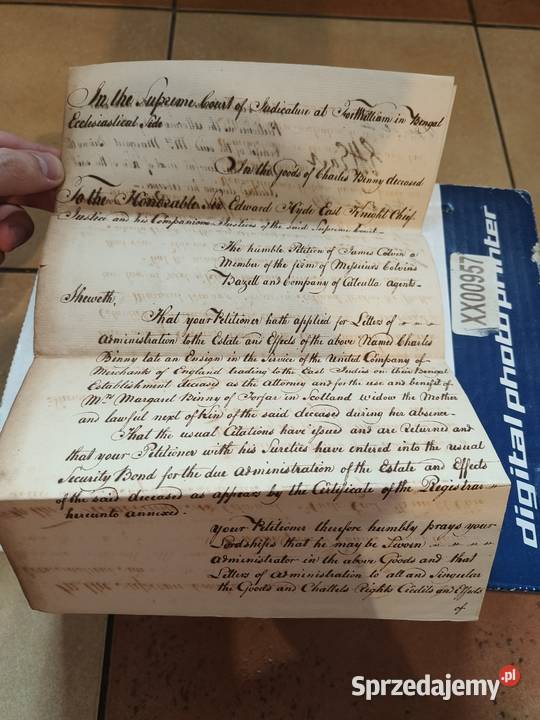 In the Supreme Court of Judicature at Fort William in Bengal
Ecclesiastical Side
In the Goods of Charles Binny deceased
To the Honorable Sir Edward Hyde East Knight Chief
Justice and his Companions Justices of the said Supreme Court
The humble Petition of James Colvin a
Member of the firm of Messieurs Colvins
Bazett and Company of Calcutta Agents
Sheweth,
That your Petitioner hath applied for Letters of
Administration to the Estate and Effects of the above Named Charles
Binny late an Ensign in the Service of the United Company of
Merchants of England trading to the East Indies on their Bengal
Establishment deceased as the Attorney and for the use and benefit of
Mrs Margaret Binny of Forfar in Scotland Widow the Mother
and lawful next of Kin of the said deceased during her absence
That the usual Citations have issued and are returned and
that your Petitioner with his Sureties have entered into the usual
Security Bond for the due administration of the Estate and Effects
of the said deceased as appears by the Certificate of the Registrar
hereunto annexed.
Your Petitioner therefore humbly prays your
Lordships that he may be Sworn
Administrator in the above Goods and that
Letters of Administration to all and Singular
the Goods and Chattels Rights Credits and Effects
of
XX00957
digital photo printer
Sprzedajemy.pl